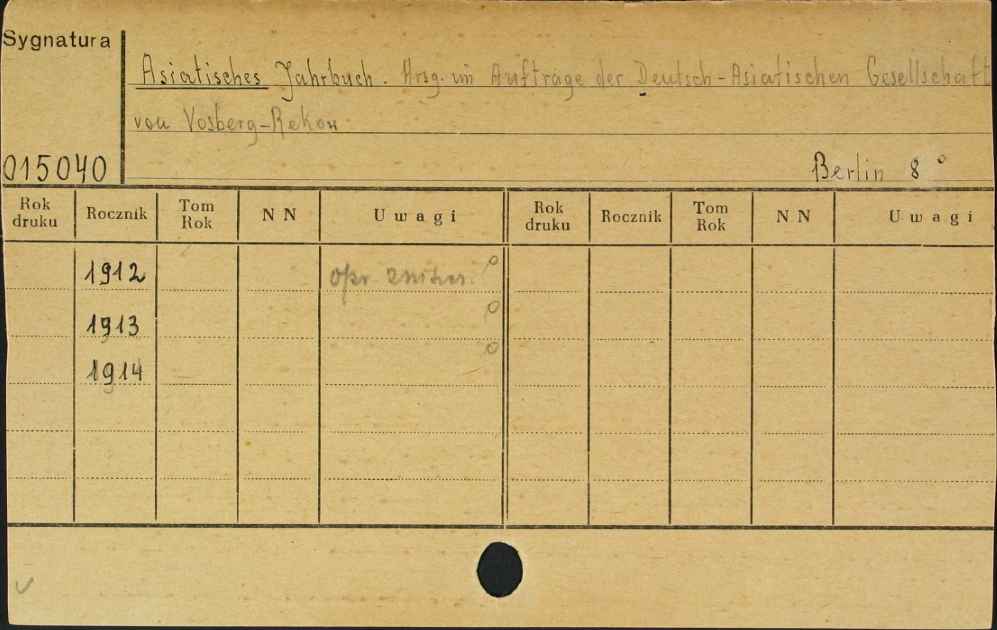 Sygnatura
Asiatisches Jahrbuch. Hrsg. im Auftrage der Deutsch-Asiatischen Gesellschaft
von Vosberg-Rekow
015040
Berlin 8°
Rok druku Rocznik Tom Rok N N Uwagi Rok druku Rocznik Tom Rok N N Uwagi
1912 opr
1913
1914